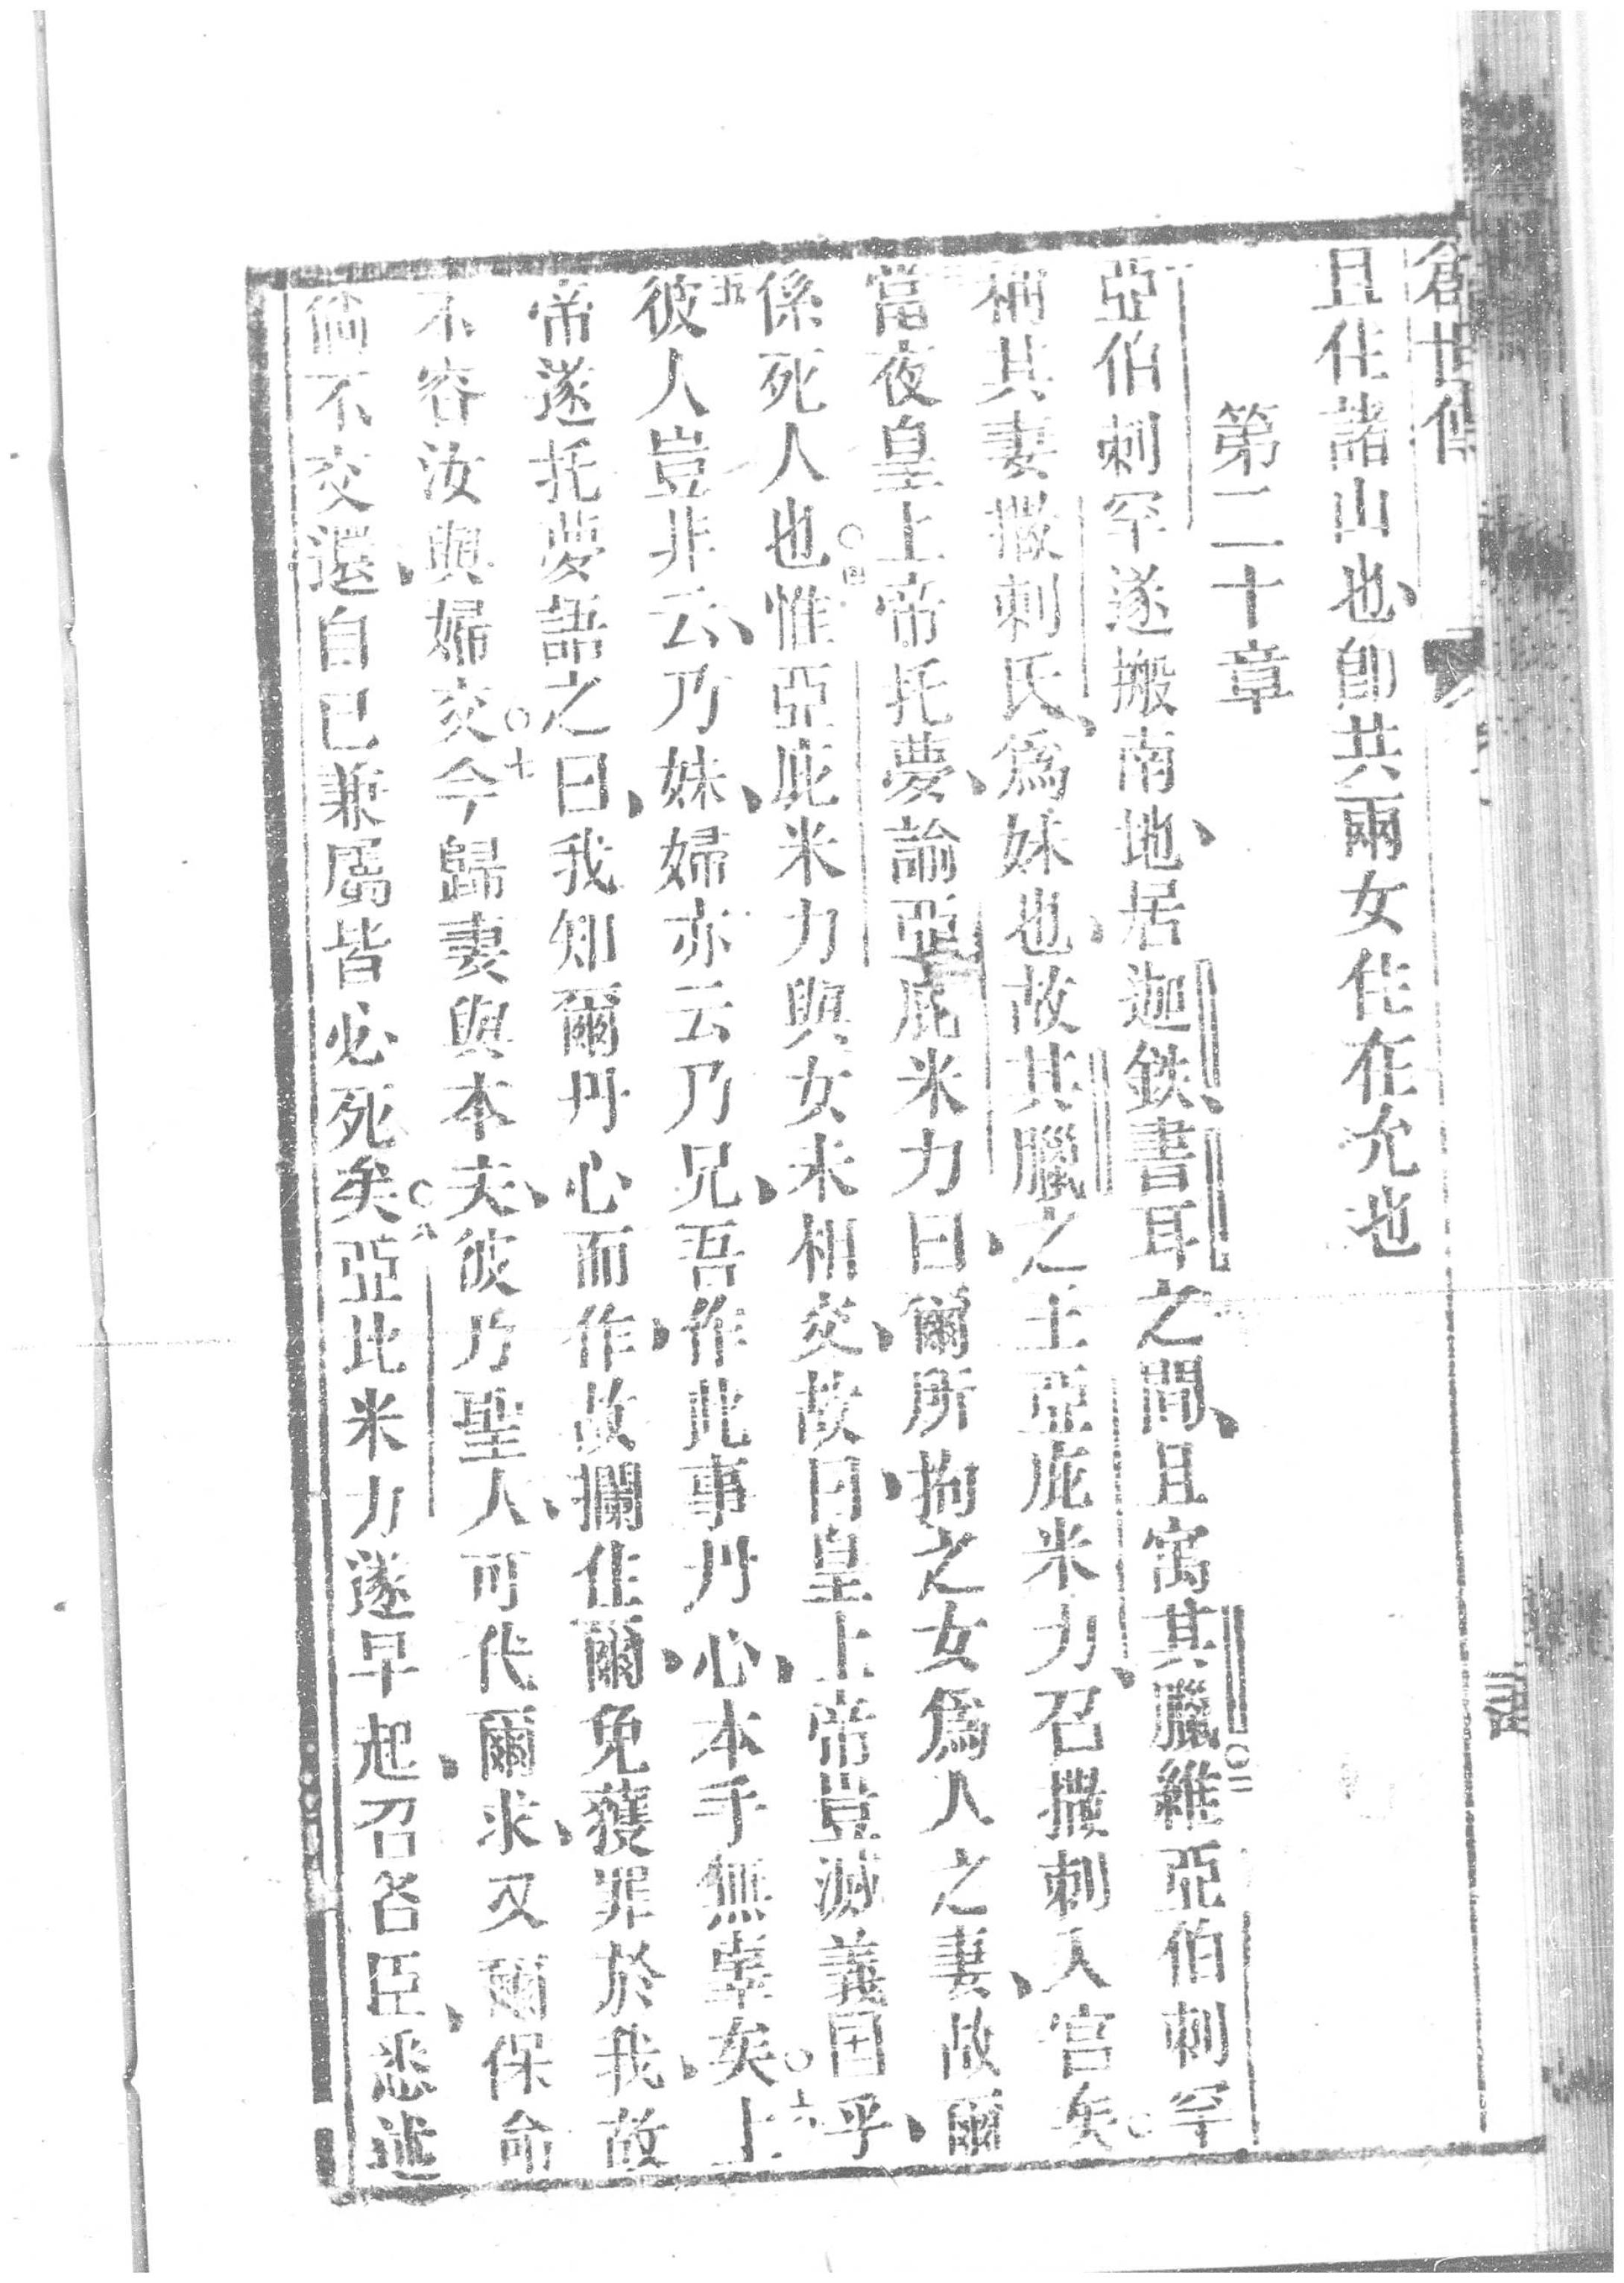 創世傳
且住諸山也、卽共兩女住在穴也
第二十章
亞伯剌罕遂搬南地、居迦鉄、書耳之間、且寓其臘〇二維亞伯剌罕
稱其妻撒剌氏、爲妹也、故其臘之王亞庇米力、召撒剌入宮矣〇
當夜皇上帝托夢、諭亞庇米力曰、爾所拘之女爲人之妻、故爾
係死人也〇四惟亞庇米力與女未相交、故曰、皇上帝豈滅義国乎、
五彼人豈非云、乃妹、婦亦云乃兄、吾作此事丹心、本手無辜矣〇六上
帝遂托夢語之曰、我知爾丹心而作、故攔住爾、免獲罪於我、故
不容汝與婦交〇七今歸妻與本夫、彼乃聖人、可代爾求、又爾保命
倘不交還、自己兼屬皆必死矣〇八亞比米力遂早起、召各臣、悉述